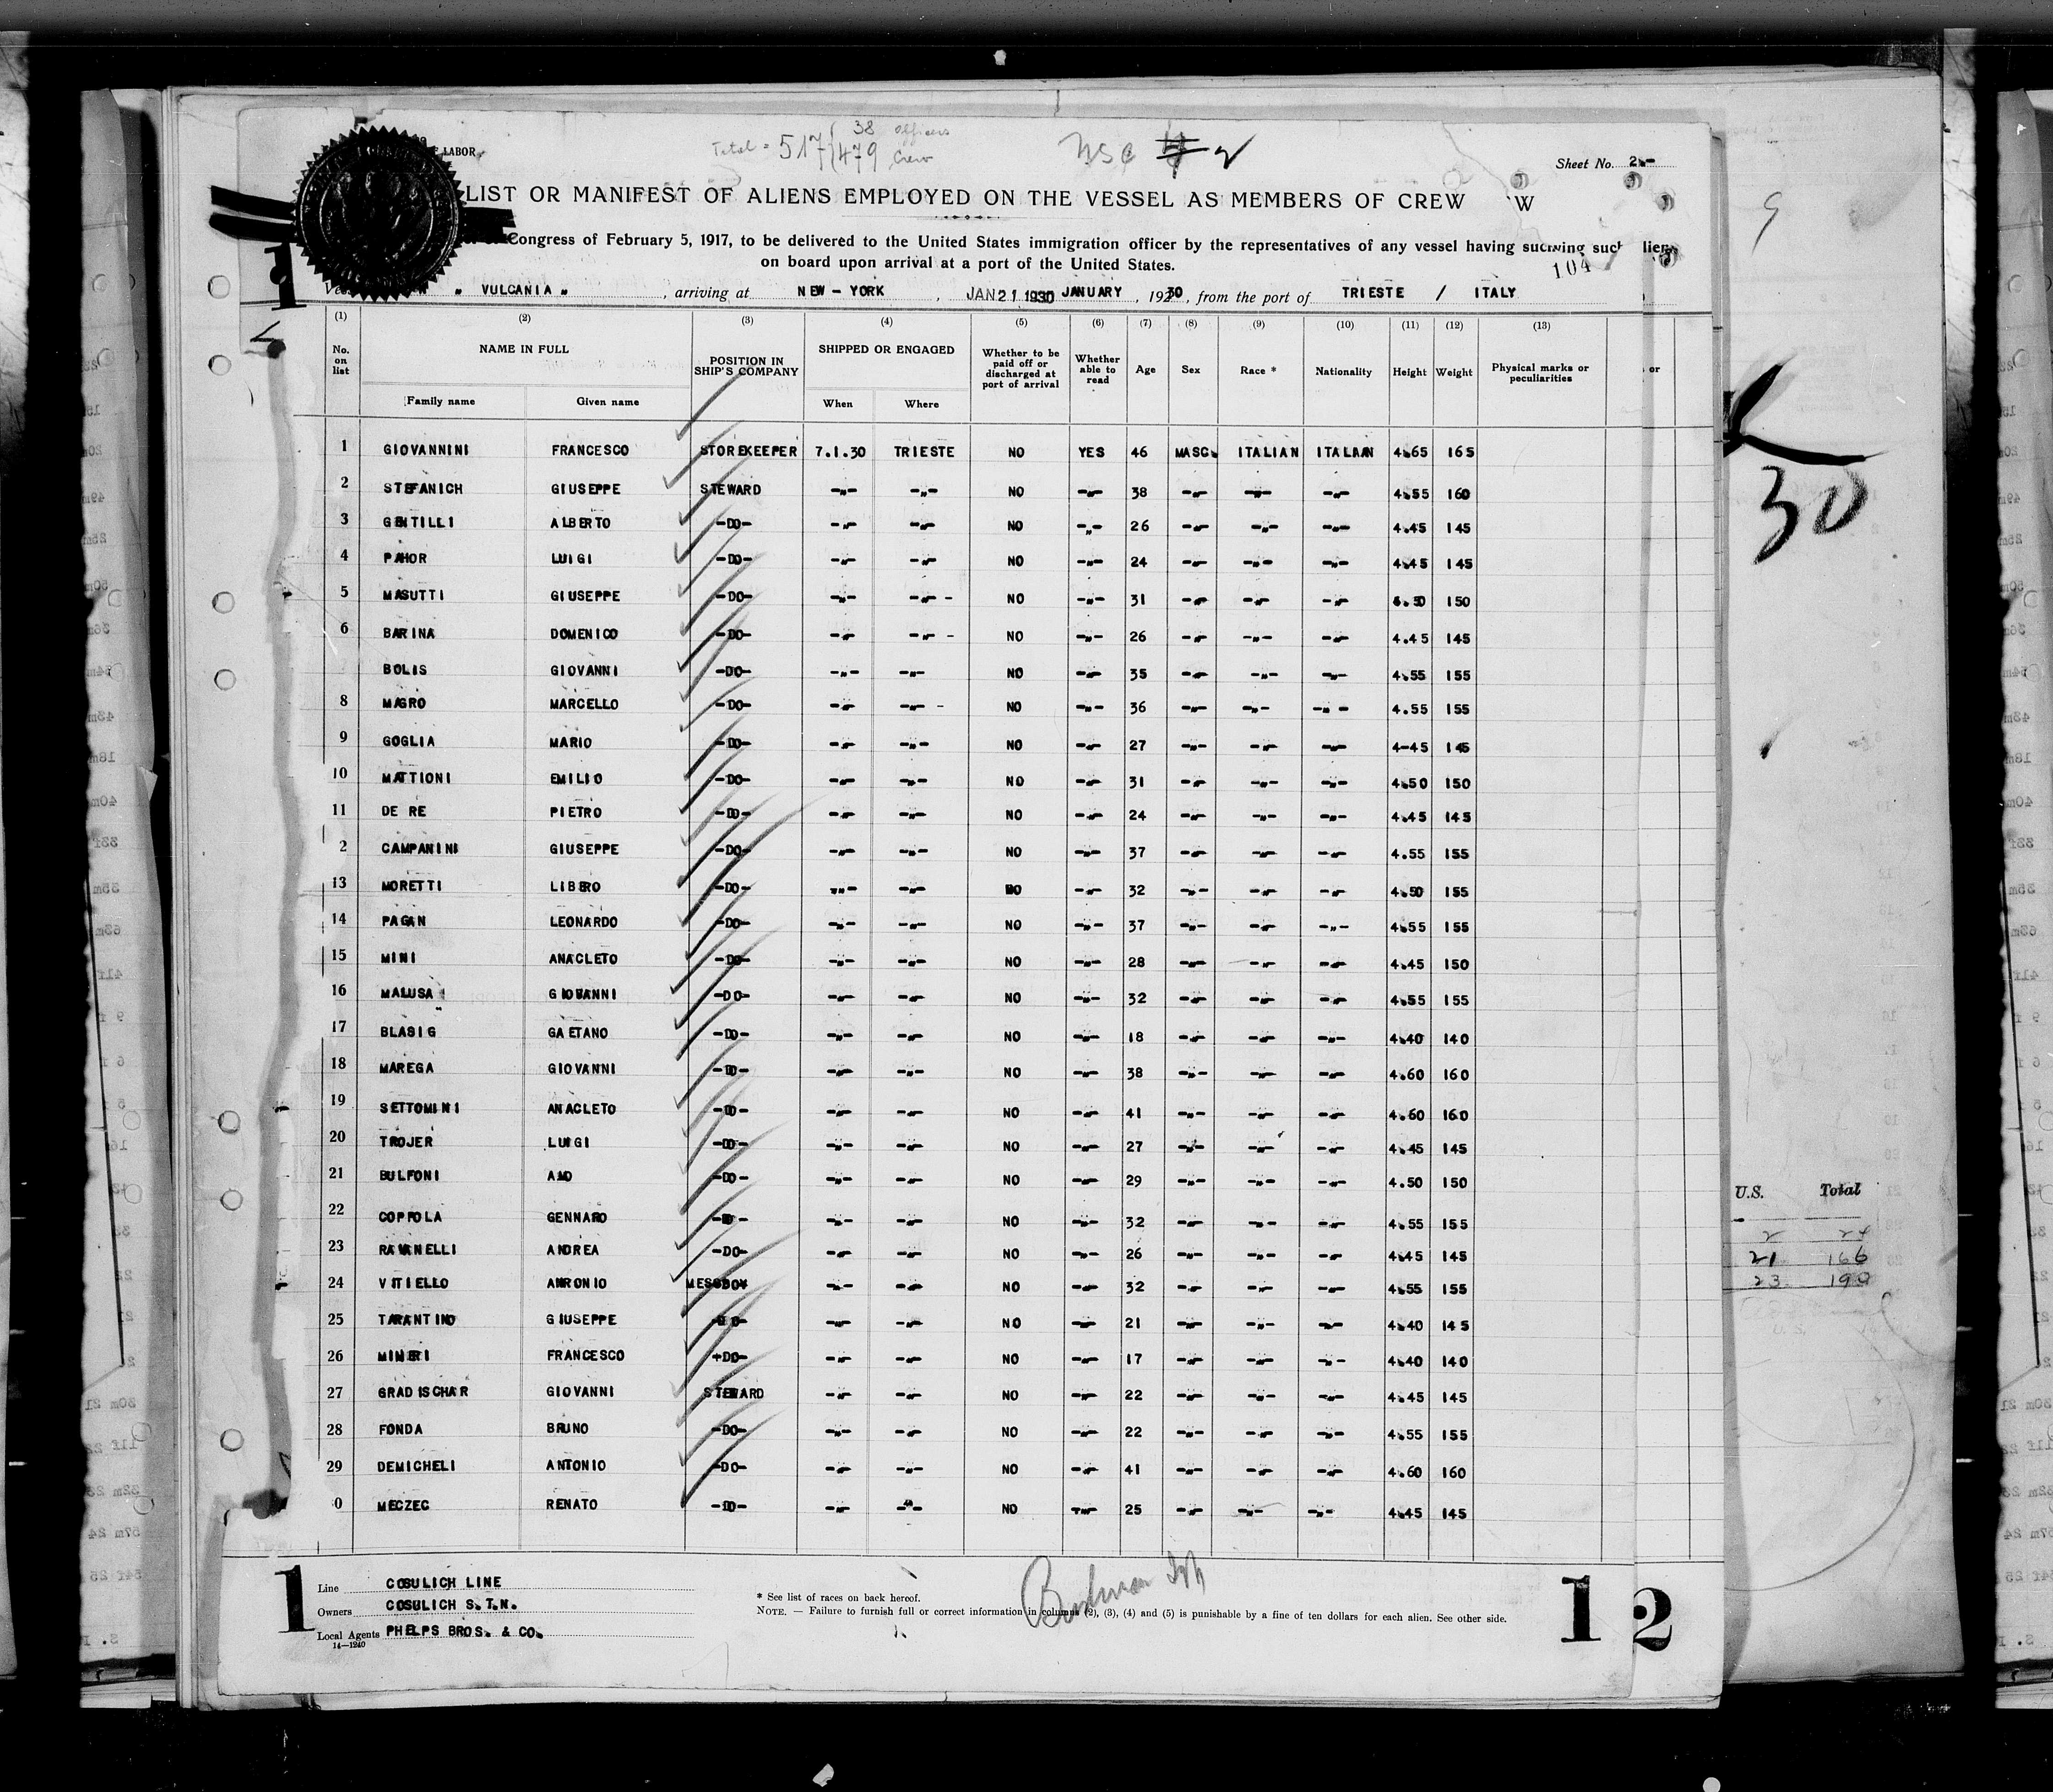 LABOR
Total = 517 { 38 officers
479 Crew
Sheet No. 2.-
LIST OR MANIFEST OF ALIENS EMPLOYED ON THE VESSEL AS MEMBERS OF CREW W
Congress of February 5, 1917, to be delivered to the United States immigration officer by the representatives of any vessel having such
on board upon arrival at a port of the United States.
104
" VULCANIA " , arriving at NEW - YORK , JAN 21 1930 JANUARY , 1930, from the port of TRIESTE / ITALY
(1) (2) (3) (4) (5) (6) (7) (8) (9) (10) (11) (12) (13)
No. on list NAME IN FULL POSITION IN SHIP'S COMPANY SHIPPED OR ENGAGED Whether to be paid off or discharged at port of arrival Whether able to read Age Sex Race * Nationality Height Weight Physical marks or peculiarities
Family name Given name When Where
1 GIOVANNINI FRANCESCO STOREKEEPER 7.1.30 TRIESTE NO YES 46 MASC. ITALIAN ITALIAN 4.65 165
2 STEFANICH GIUSEPPE STEWARD -"- -"- NO -"- 38 -"- -"- -"- 4.55 160
3 GENTILLI ALBERTO -DO- -"- -"- NO -"- 26 -"- -"- -"- 4.45 145
4 PAHOR LUIGI -DO- -"- -"- NO -"- 24 -"- -"- -"- 4.45 145
5 MASUTTI GIUSEPPE -DO- -"- -"- - NO -"- 31 -"- -"- -"- 4.50 150
6 BARINA DOMENICO -DO- -"- -"- - NO -"- 26 -"- -"- -"- 4.45 145
BOLIS GIOVANNI -DO- -"- -"- NO -"- 35 -"- -"- -"- 4.55 155
8 MAGRO MARCELLO -DO- -"- -"- - NO -"- 36 -"- -"- -"- 4.55 155
9 GOGLIA MARIO -DO- -"- -"- NO -"- 27 -"- -"- -"- 4-45 145
10 MATTIONI EMILIO -DO- -"- -"- NO -"- 31 -"- -"- -"- 4.50 150
11 DE RE PIETRO -DO- -"- -"- NO -"- 24 -"- -"- -"- 4.45 145
2 CAMPANINI GIUSEPPE -DO- -"- -"- NO -"- 37 -"- -"- -"- 4.55 155
13 MORETTI LIBERO -DO- -"- -"- NO -"- 32 -"- -"- -"- 4.50 155
14 PAGAN LEONARDO -DO- -"- -"- NO -"- 37 -"- -"- -"- 4.55 155
15 MINI ANACLETO -DO- -"- -"- NO -"- 28 -"- -"- -"- 4.45 150
16 MALUSA GIOVANNI -DO- -"- -"- NO -"- 32 -"- -"- -"- 4.55 155
17 BLASIG GAETANO -DO- -"- -"- NO -"- 18 -"- -"- -"- 4.40 140
18 MAREGA GIOVANNI -DO- -"- -"- NO -"- 38 -"- -"- -"- 4.60 160
19 SETTOMINI ANACLETO -DO- -"- -"- NO -"- 41 -"- -"- -"- 4.60 160
20 TROJER LUIGI -DO- -"- -"- NO -"- 27 -"- -"- -"- 4.45 145
21 BULFONI -DO- -"- -"- NO -"- 29 -"- -"- -"- 4.50 150
22 COPPOLA GENNARO -DO- -"- -"- NO -"- 32 -"- -"- -"- 4.55 155
23 RAVANELLI ANDREA -DO- -"- -"- NO -"- 26 -"- -"- -"- 4.45 145
24 VITIELLO ANTONIO MESSBOY -"- -"- NO -"- 32 -"- -"- -"- 4.55 155
25 TARANTINO GIUSEPPE -DO- -"- -"- NO -"- 21 -"- -"- -"- 4.40 145
26 MINERI FRANCESCO -DO- -"- -"- NO -"- 17 -"- -"- -"- 4.40 140
27 GRADISCHAR GIOVANNI STEWARD -"- -"- NO -"- 22 -"- -"- -"- 4.45 145
28 FONDA BRUNO -DO- -"- -"- NO -"- 22 -"- -"- -"- 4.55 155
29 DEMICHELI ANTONIO -DO- -"- -"- NO -"- 41 -"- -"- -"- 4.60 160
0 MECZEC RENATO -DO- -"- -"- NO -"- 25 -"- -"- -"- 4.45 145
30
U.S. Total
2 24
21 166
23 190
Line COSULICH LINE
Owners COSULICH S.T.N.
Local Agents PHELPS BROS. & CO.
14—1240
* See list of races on back hereof.
NOTE. — Failure to furnish full or correct information in columns (2), (3), (4) and (5) is punishable by a fine of ten dollars for each alien. See other side.
1 1 2